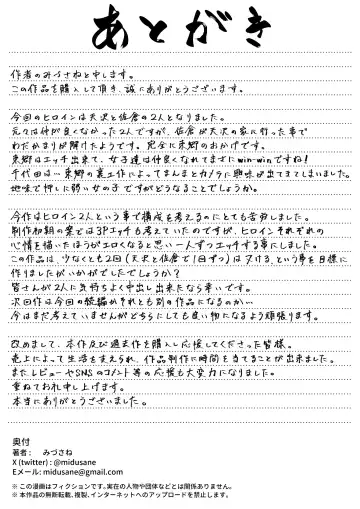 あとがき
作者のみづさねと申します。
この作品を購入して頂き、誠にありがとうございます。
今回のヒロインは天沢と佐倉の2人となりました。
元々は仲が良くなかった2人ですが、佐倉が天沢の家に行った事で
わだかまりが解けたようです。完全に東郷のおかげです。
東郷はエッチ出来て、女子達は仲良くなれてまさにwin-winですね！
千代田は…東郷の裏工作によってまんまとカノラに興味が出てきてしまいました。
地味で押しに弱い女の子ですがどうなることでしょうか。
今作はヒロイン2人という事で構成を考えるのにとても苦労しました。
制作初期の案では3Pエッチも考えていたのですが、ヒロインそれぞれの
心情を描いたほうがエロくなると思い一人ずつエッチする事にしました。
この作品は、少なくとも2回(天沢と佐倉で1回ずつ)はヌける、という事を目標に
作りましたがいかがでしたでしょうか？
皆さんが2人に気持ちよく中出し出来たなら幸いです。
次回作は今回の続編かそれとも別の作品になるのか…
今はまだ考えていませんがどちらにしても良い物になるよう頑張ります。
改めまして、本作及び過去作を購入し応援してくださった皆様。
売上によって生活を支えられ、作品制作に時間を当てることが出来ました。
またレビューやSNSのコメント等の応援も大変力になりました。
重ねてお礼申し上げます。
本当にありがとうございました。
奥付
著者： みづさね
X (twitter) : @midusane
Eメール: midusane@gmail.com
※ この漫画はフィクションです。実在の人物や団体などとは関係ありません。
※ 本作品の無断転載、複製、インターネットへのアップロードを禁止します。